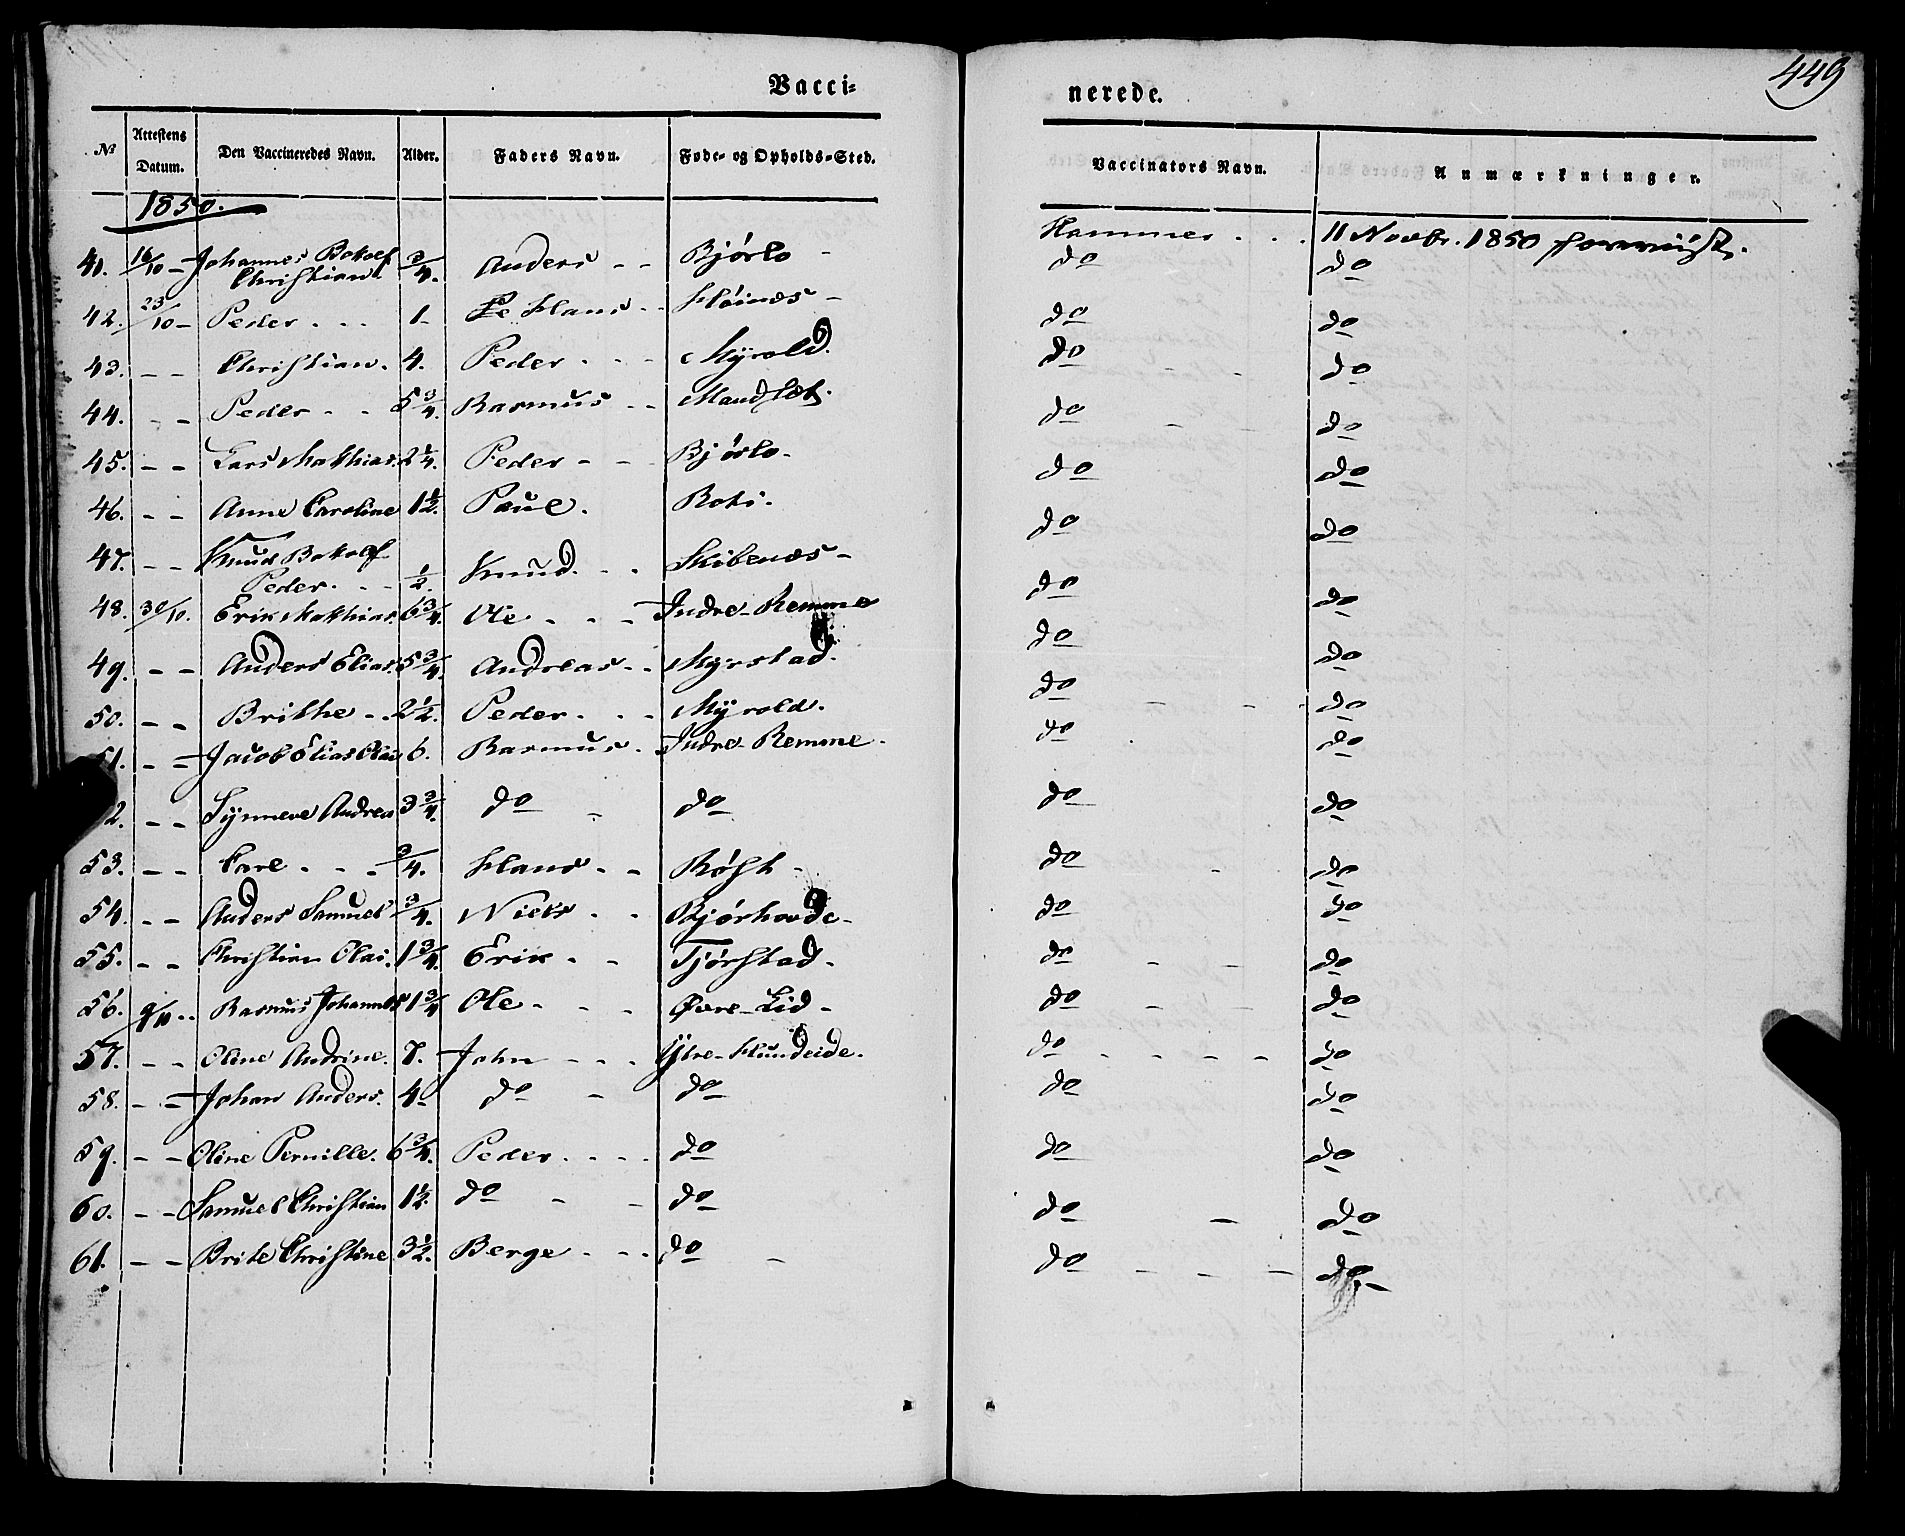 449
Vacci- nerede.
№ Attestens Datum. Den Vaccineredes Navn. Alder. Faders Navn. Føde- og Opholds-Sted. Vaccinators Navn. Anmærkninger.
1850.
41. 16/10 - Johannes Christian 3/4. Anders - - Bjørlo - Hammer . . . 11 Novbr. 1850
do do
42. 23/10 - Peder . . . 1 - Hans - - Høinæs - do do
43. - - Christian. 4. Peder . - - Myrold. do do
44. - - Peder - - 5 3/4. Rasmus - - do do
45. - - Lars Mathias. 2 1/4. Peder - - Bjørlo - do do
46. - - Anne Caroline 1 1/2. Paul. Roti. do do
47. - - Knud
Peder. - - 1/2. Knud. - . Skibenæs - do do
48. 30/10. Erik Mathias. 6 3/4. Ole - - - Indre-Remme do do
49. - - Anders Elias. 5 3/4. Andreas - - Myrstad. do do
50. - - Brithe - - 2 1/2. Peder . . - Myrold. do do
51. - - Jacob Elias Olai 6. Rasmus - Indre-Remme - do do
2. - - Synneve Andrea 3 3/4. do - do do do
53. - - Carl - - - 3/4. Hans - - do - do
54. - - Anders Samuel 3/4. Niels . . Bjørhovde - do do
55. - - Christian Olai. 1 3/4. Erik - - Tjørstad - do do
56. 9/10 - - Rasmus Johannes 1 3/4 Ole - - - Øvre-Lid - do do
57. - - Oline Andrine. 7. John - - - Ytre-Hundeide. do - - - - do
58. - - Johan Anders. 4 - do - do do do
59. - - Oline Pernille. 6 3/4. Peder . - - - do do do
60. - - Samuel Christian 1 1/2. do - - do do - do
61. - - Brite Christine 3 1/2. Berge - - - do - do - - - do -